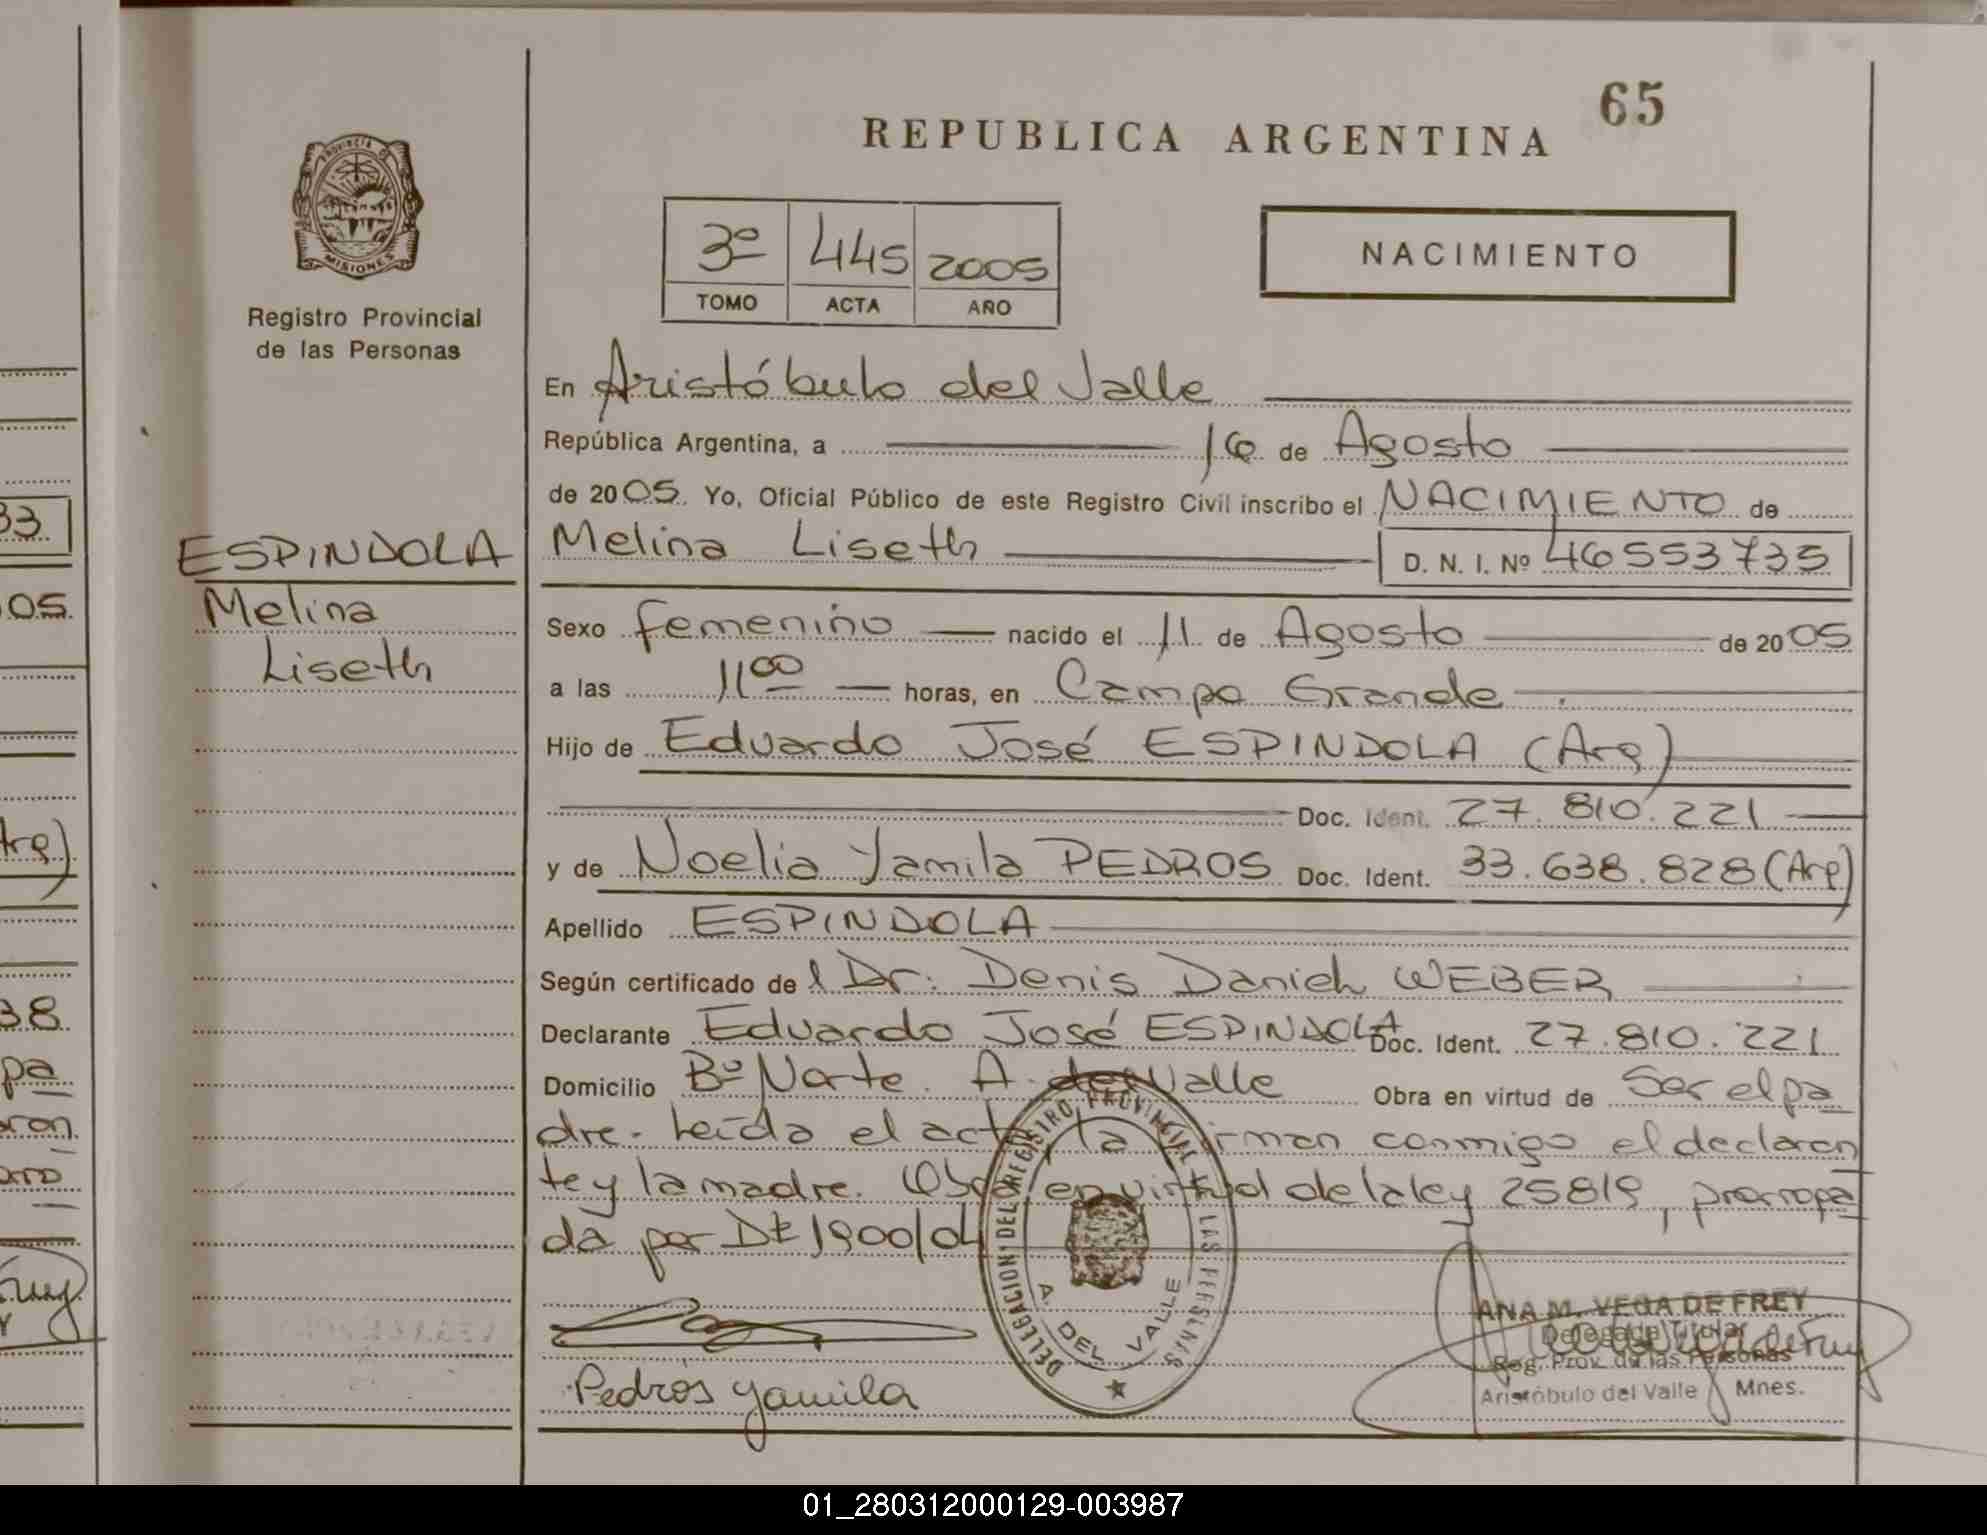 65
REPUBLICA ARGENTINA
PROVINCIA DE
MISIONES
Registro Provincial
de las Personas
3º 445 2005
TOMO ACTA AÑO
NACIMIENTO
En Aristóbulo del Valle
República Argentina, a 16 de Agosto
de 2005. Yo, Oficial Público de este Registro Civil inscribo el NACIMIENTO de
ESPINDOLA
Melina
Liseth
Melina Liseth D. N. I. Nº 46553735
Sexo femenino nacido el 11 de Agosto de 2005
a las 11 00 horas, en Campo Grande
Hijo de Eduardo José ESPINDOLA (Arg)
Doc. Ident. 27.810.221
y de Noelia Yamila PEDROS Doc. Ident. 33.638.828 (Arg)
Apellido ESPINDOLA
Según certificado de l Dr. Denis Daniel WEBER
Declarante Eduardo José ESPINDOLA Doc. Ident. 27.810.221
Domicilio Bº Norte. A. del Valle Obra en virtud de Ser el pa
dre. Leída el acta la firman conmigo el declaran
te y la madre. Obra en virtud de la ley 25819, prorroga
da por Dt 1900/04
DELEGACION DEL REGISTRO PROVINCIAL DE LAS PERSONAS
A. DEL VALLE
Pedros Yamila
ANA M. VEGA DE FREY
Delegada Titular
Reg. Prov. de las Personas
Aristóbulo del Valle Mnes.
33
05
Arg)
38
pa
ron
01_280312000129-003987